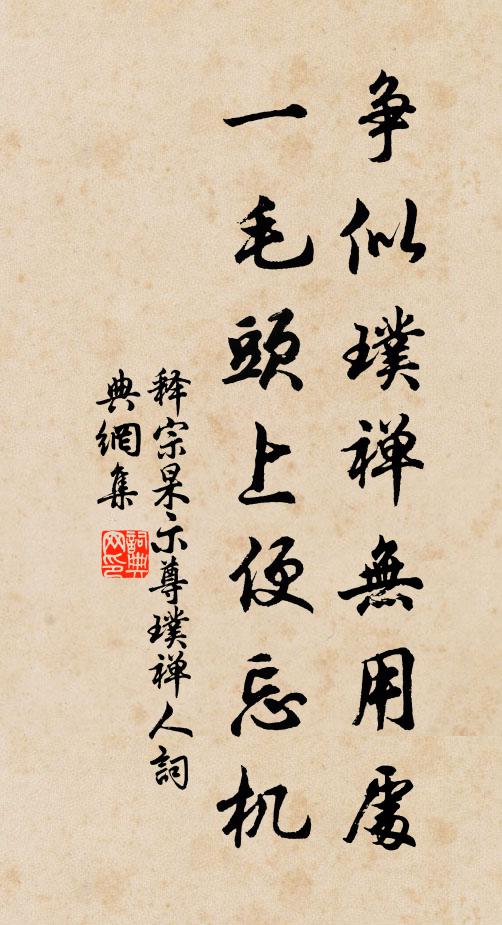 争似璞禅無用處
一毛頭上便忘机
释宗杲示尊璞禅人詞
典網集
詞典
网印